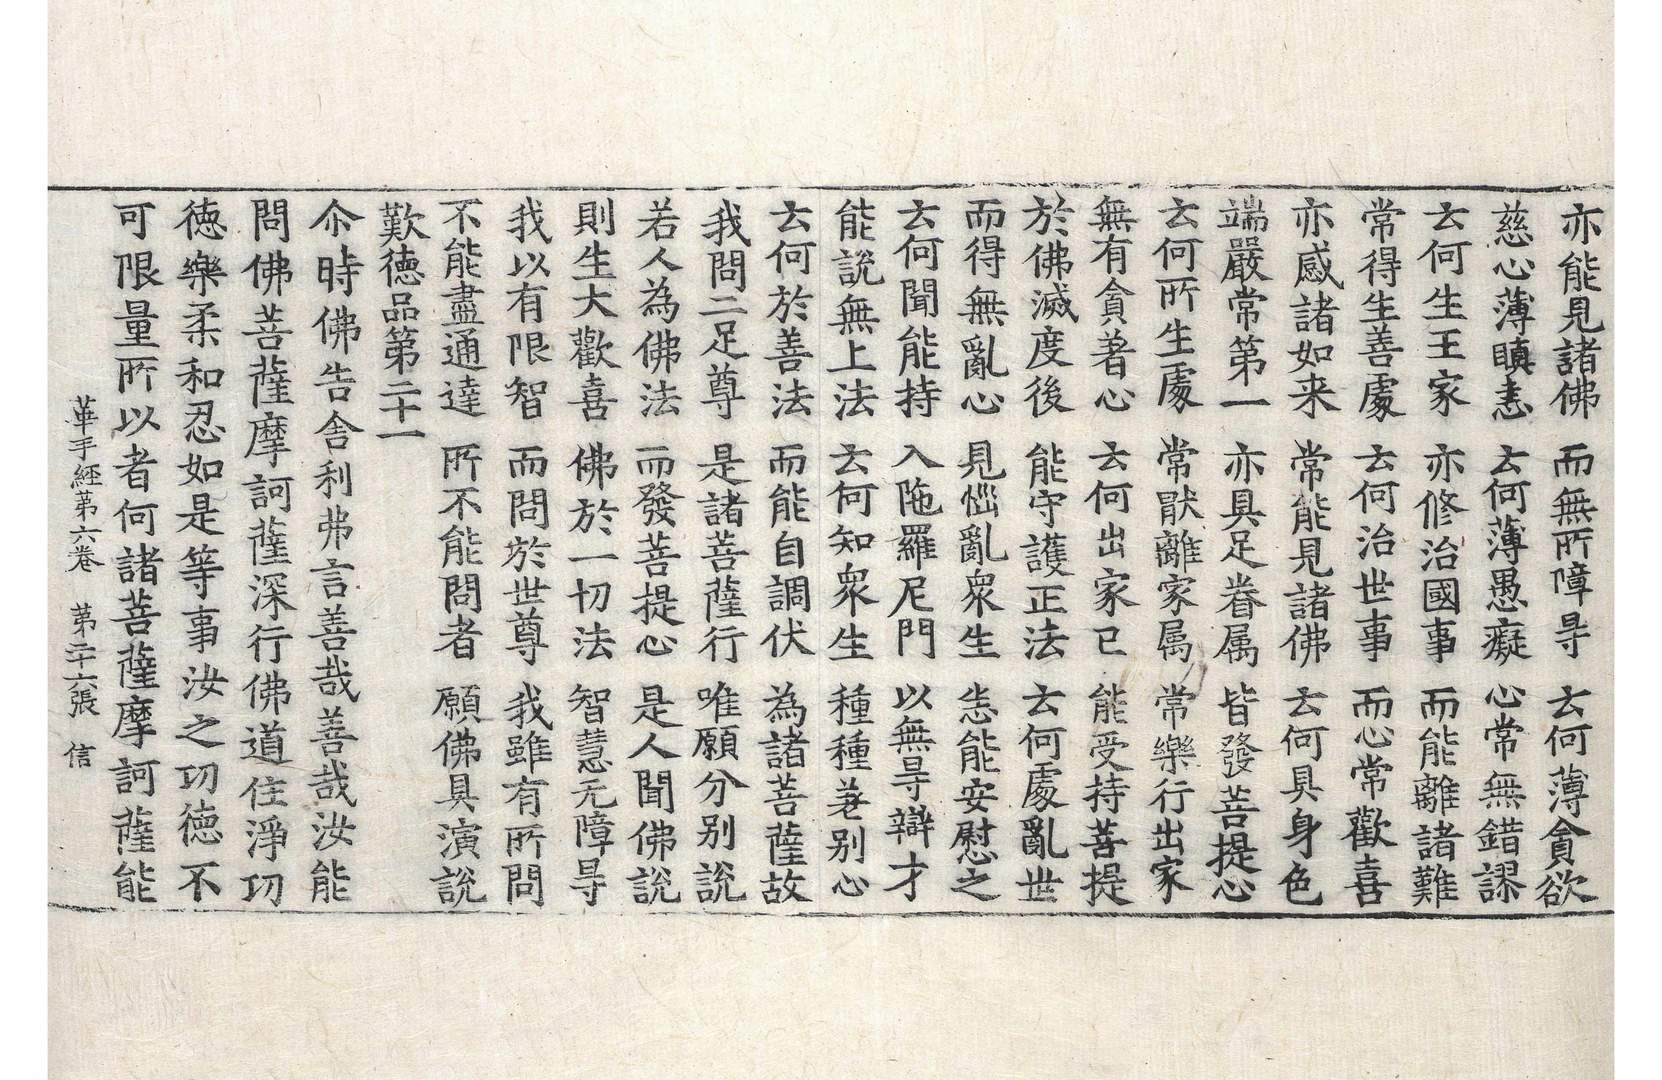 亦能見諸佛　而無所障㝵　云何薄貪欲
慈心薄瞋恚　云何薄愚癡　心常無錯謬
云何生王家　亦修治國事　而能離諸難
常得生善處　云何治世事　而心常歡喜
亦感諸如来　常能見諸佛　云何具身色
端嚴常第一　亦具足眷属　皆發菩提心
云何所生處　常猒離家属　常樂行出家
無有貪著心　云何出家已　能受持菩提
於佛滅度後　能守護正法　云何處亂世
而得無亂心　見惱亂衆生　悉能安慰之
云何聞能持　入陁羅尼門　以無㝵辯才
能說無上法　云何知衆生　種種差别心
云何於善法　而能自調伏　為諸菩薩故
我問二足尊　是諸菩薩行　唯願分别說
若人為佛法　而發菩提心　是人聞佛說
則生大歡喜　佛於一切法　智慧无障㝵
我以有限智　而問於世尊　我雖有所問
不能盡通達　所不能問者　願佛具演說
歎德品第二十一
尒時佛告舎利弗言善哉善哉汝能
問佛菩薩摩訶薩深行佛道住淨功
德樂柔和忍如是等事汝之功德不
可限量所以者何諸菩薩摩訶薩能
華手経第六卷　第二十六張　信